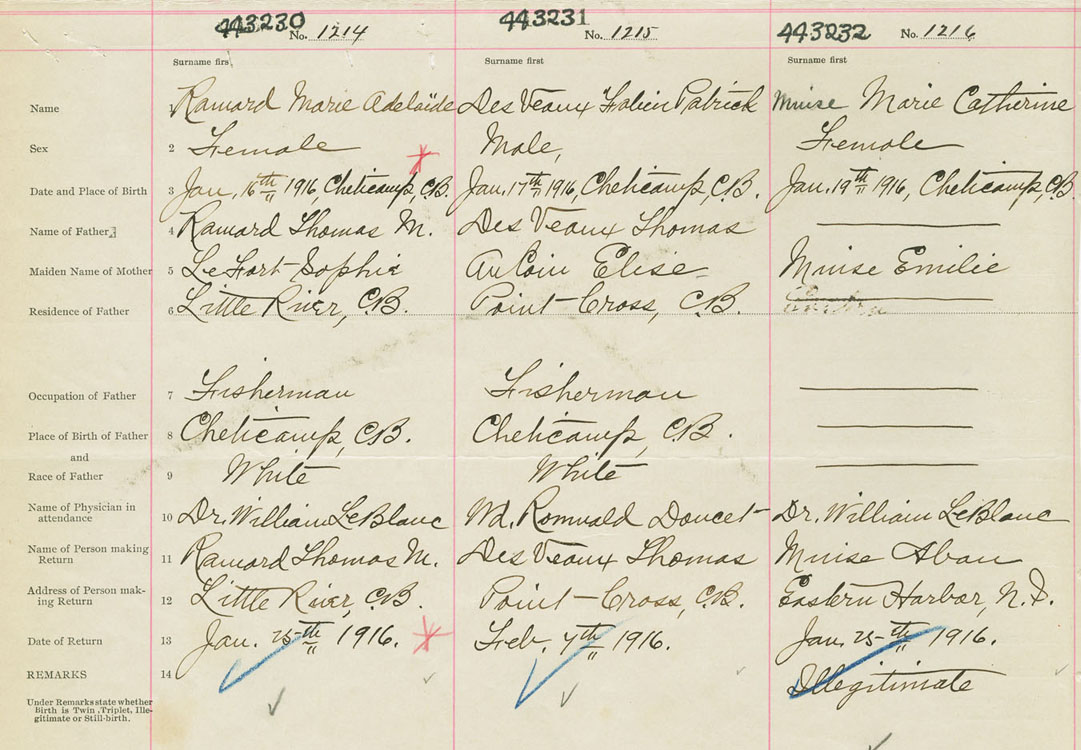 443230 No. 1214 443231 No. 1215 443232 No. 1216
Surname firs Surname first Surname first
Name 1 Ramard Marie Adelaïde Des Veaux Fabien Patrick Muise Marie Catherine
Sex 2 Female Male, Female
Date and Place of Birth 3 Jan. 16th 1916, Cheticamp, C.B. Jan. 17th 1916, Cheticamp, C.B. Jan. 19th 1916, Cheticamp, C.B.
Name of Father 4 Ramard Thomas M. Des Veaux Thomas
Maiden Name of Mother 5 LeFort Sophie AuCoin Elise Muise Emilie
Residence of Father 6 Little River, C.B. Point-Cross, C.B.
Occupation of Father 7 Fisherman Fisherman
Place of Birth of Father 8 Cheticamp, C.B. Cheticamp, C.B.
and
Race of Father 9 White White
Name of Physician in
attendance 10 Dr. William LeBlanc Wd. Romuald Doucet Dr. William LeBlanc
Name of Person making
Return 11 Ramard Thomas M. Des Veaux Thomas Muise
Address of Person mak-
ing Return 12 Little River, C.B. Point-Cross, C.B. Eastern Harbor, N.S.
Date of Return 13 Jan. 25th 1916. Feb. 7th 1916. Jan. 25th 1916.
REMARKS 14 Illegitimate
Under Remarks state whether
Birth is Twin, Triplet, Ille-
gitimate or Still-birth.